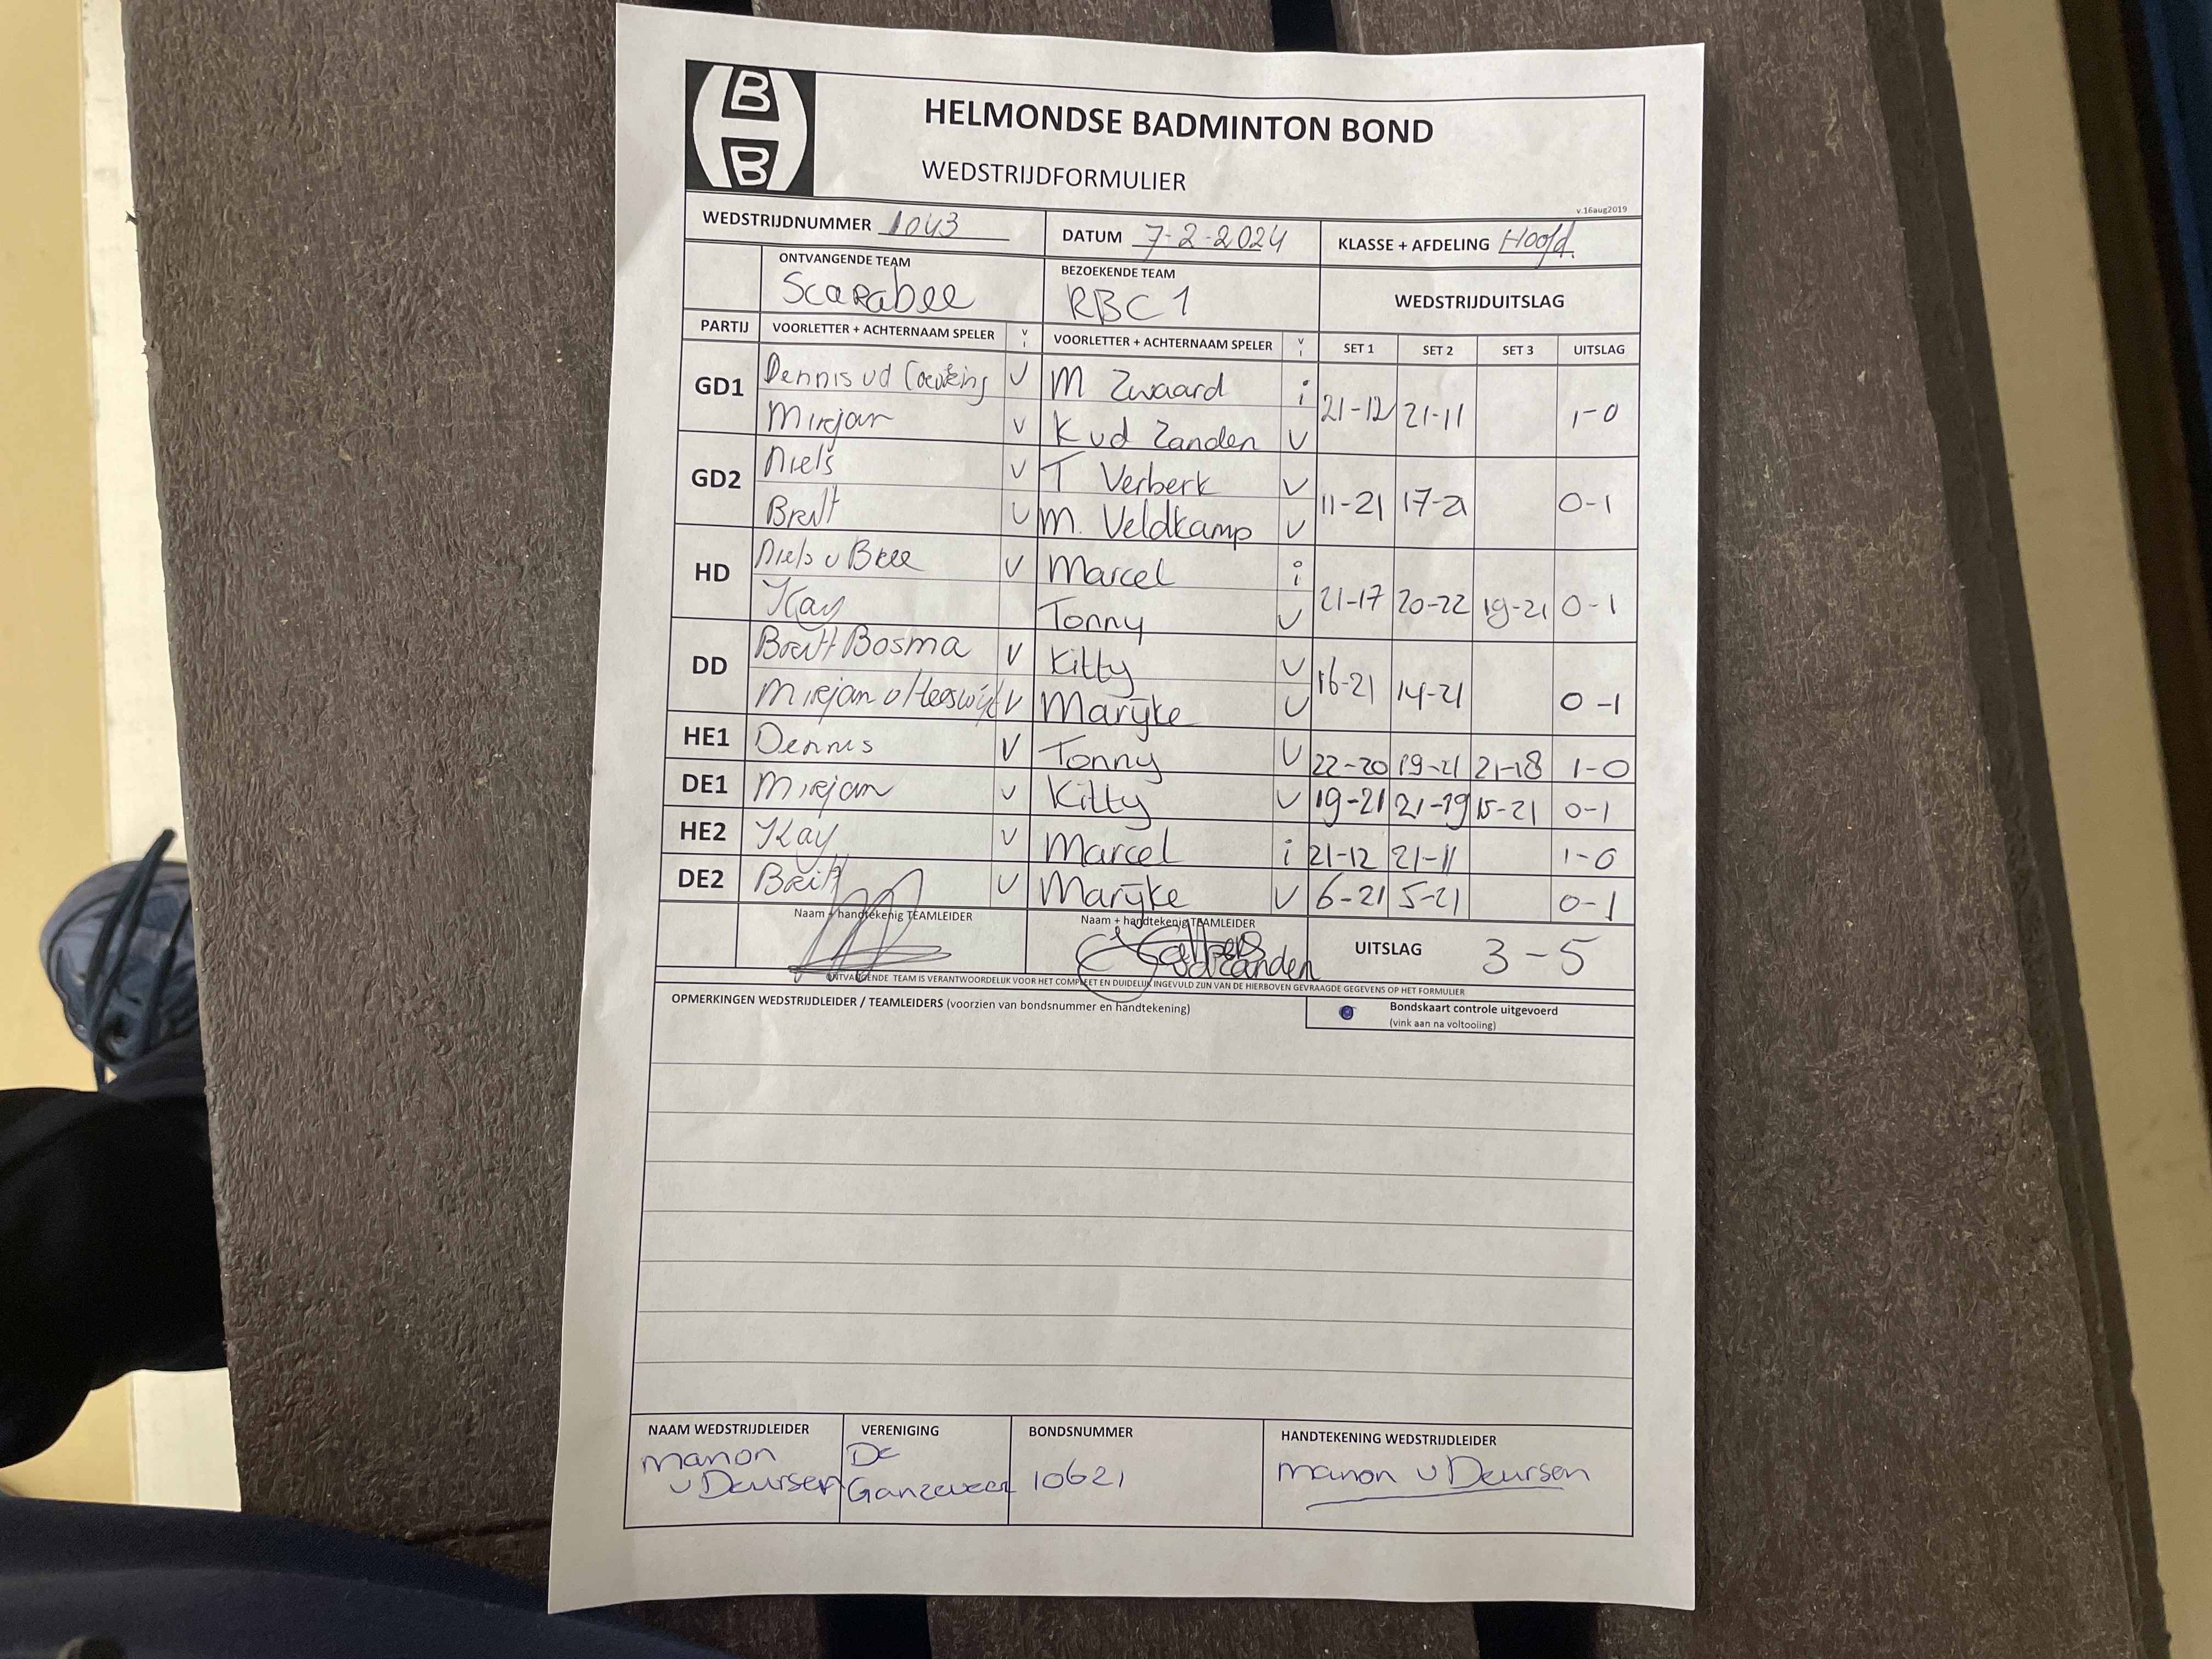 B
B
HELMONDSE BADMINTON BOND
WEDSTRIJDFORMULIER
v.16aug2019
WEDSTRIJDNUMMER 1043 DATUM 7-2-2024 KLASSE + AFDELING Hoofd.
ONTVANGENDE TEAM BEZOEKENDE TEAM
Scarabee RBC 1 WEDSTRIJDUITSLAG
PARTIJ VOORLETTER + ACHTERNAAM SPELER V I VOORLETTER + ACHTERNAAM SPELER V I SET 1 SET 2 SET 3 UITSLAG
GD1 Dennis vd V M Zwaard i 21-12 21-11 1-0
Mirjan V K vd Zanden V
GD2 Niels V T Verberk V 11-21 17-21 0-1
Britt V M. Veldkamp V
HD Niels v Bree V Marcel i 21-17 20-22 19-21 0-1
Kay Tonny V
DD Britt Bosma V Kitty V 16-21 14-21 0-1
Mirjan v Heeswijk V Marijke V
HE1 Dennis V Tonny V 22-20 19-21 21-18 1-0
DE1 Mirjan V Kitty V 19-21 21-19 15-21 0-1
HE2 Kay V Marcel i 21-12 21-11 1-0
DE2 Britt V Marijke V 6-21 5-21 0-1
Naam + handtekenig TEAMLEIDER Naam + handtekenig TEAMLEIDER
vd Zanden UITSLAG 3-5
ONTVANGENDE TEAM IS VERANTWOORDELIJK VOOR HET COMPLEET EN DUIDELIJK INGEVULD ZIJN VAN DE HIERBOVEN GEVRAAGDE GEGEVENS OP HET FORMULIER
OPMERKINGEN WEDSTRIJDLEIDER / TEAMLEIDERS (voorzien van bondsnummer en handtekening) Bondskaart controle uitgevoerd
(vink aan na voltooiing)
NAAM WEDSTRIJDLEIDER VERENIGING BONDSNUMMER HANDTEKENING WEDSTRIJDLEIDER
manon v Deursen De Ganzeveer 10621 manon v Deursen